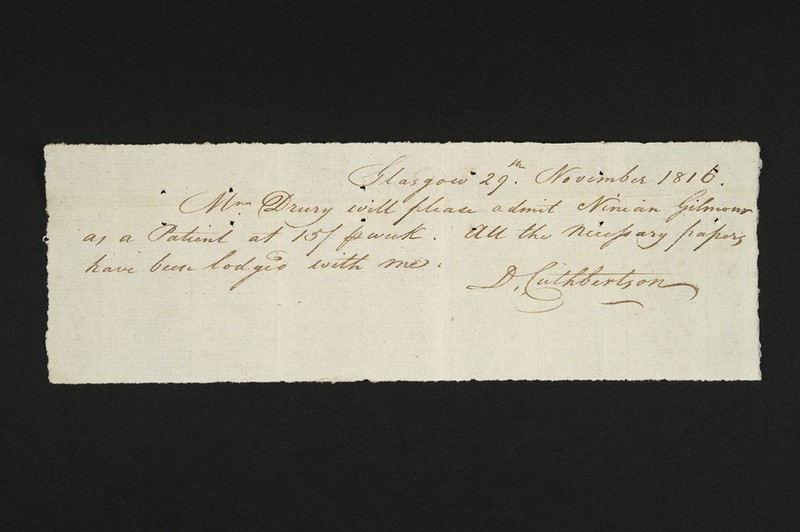 Glasgow 29th. November 1816.
Mr. Drury will please admit Ninian Gilmour
as a Patient at 15/ ⅌ week. All the necessary papers
have been lodged with me.
D. Cuthbertson